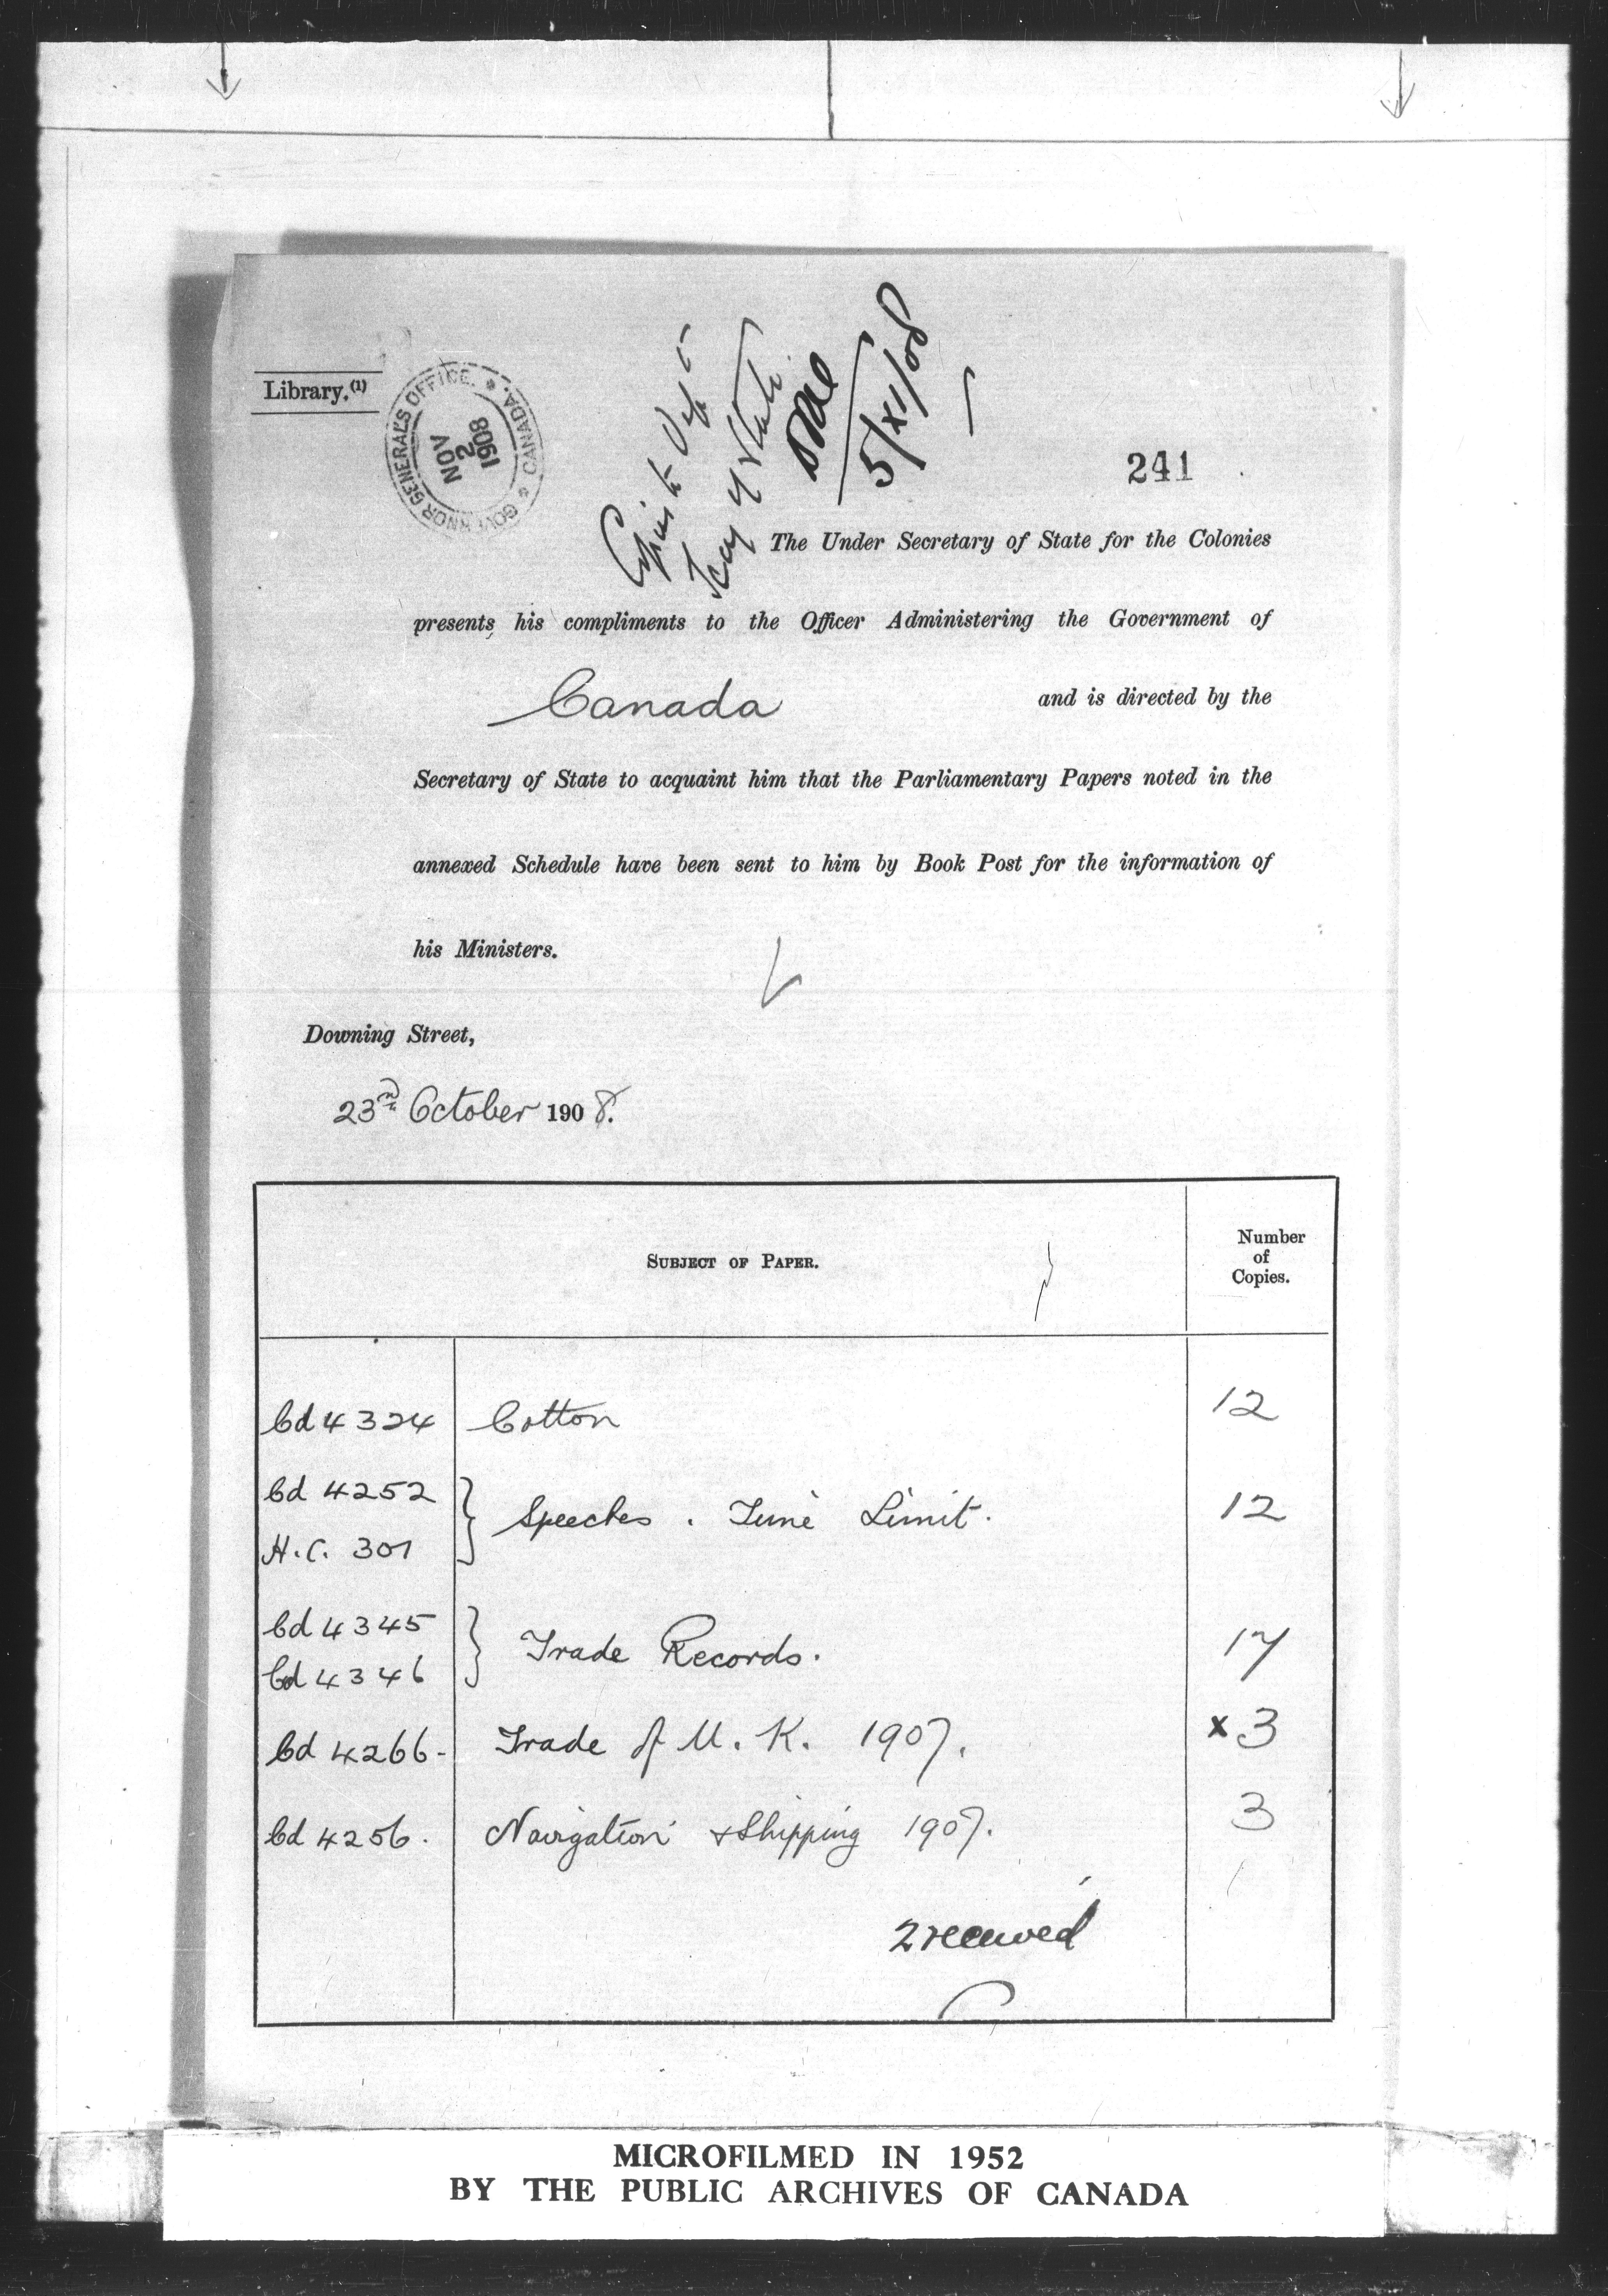 Library.(1)
GOVERNOR GENERAL'S OFFICE. * CANADA. *
NOV
2
1908
to Dept
of State
5/XI/08
241
The Under Secretary of State for the Colonies
presents his compliments to the Officer Administering the Government of
Canada and is directed by the
Secretary of State to acquaint him that the Parliamentary Papers noted in the
annexed Schedule have been sent to him by Book Post for the information of
his Ministers.
Downing Street,
23rd October 1908.
SUBJECT OF PAPER. Number of Copies.
Cd 4324 Cotton 12
Cd 4252
H.C. 301 } Speeches. Time Limit. 12
Cd 4345
Cd 4346 } Trade Records. 17
Cd 4266- Trade of U.K. 1907. x 3
Cd 4256. Navigation & Shipping 1907. 3
2 received
MICROFILMED IN 1952
BY THE PUBLIC ARCHIVES OF CANADA